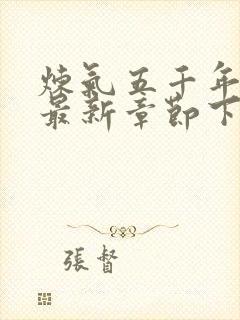 煉氣五千年
最新章節下
張督